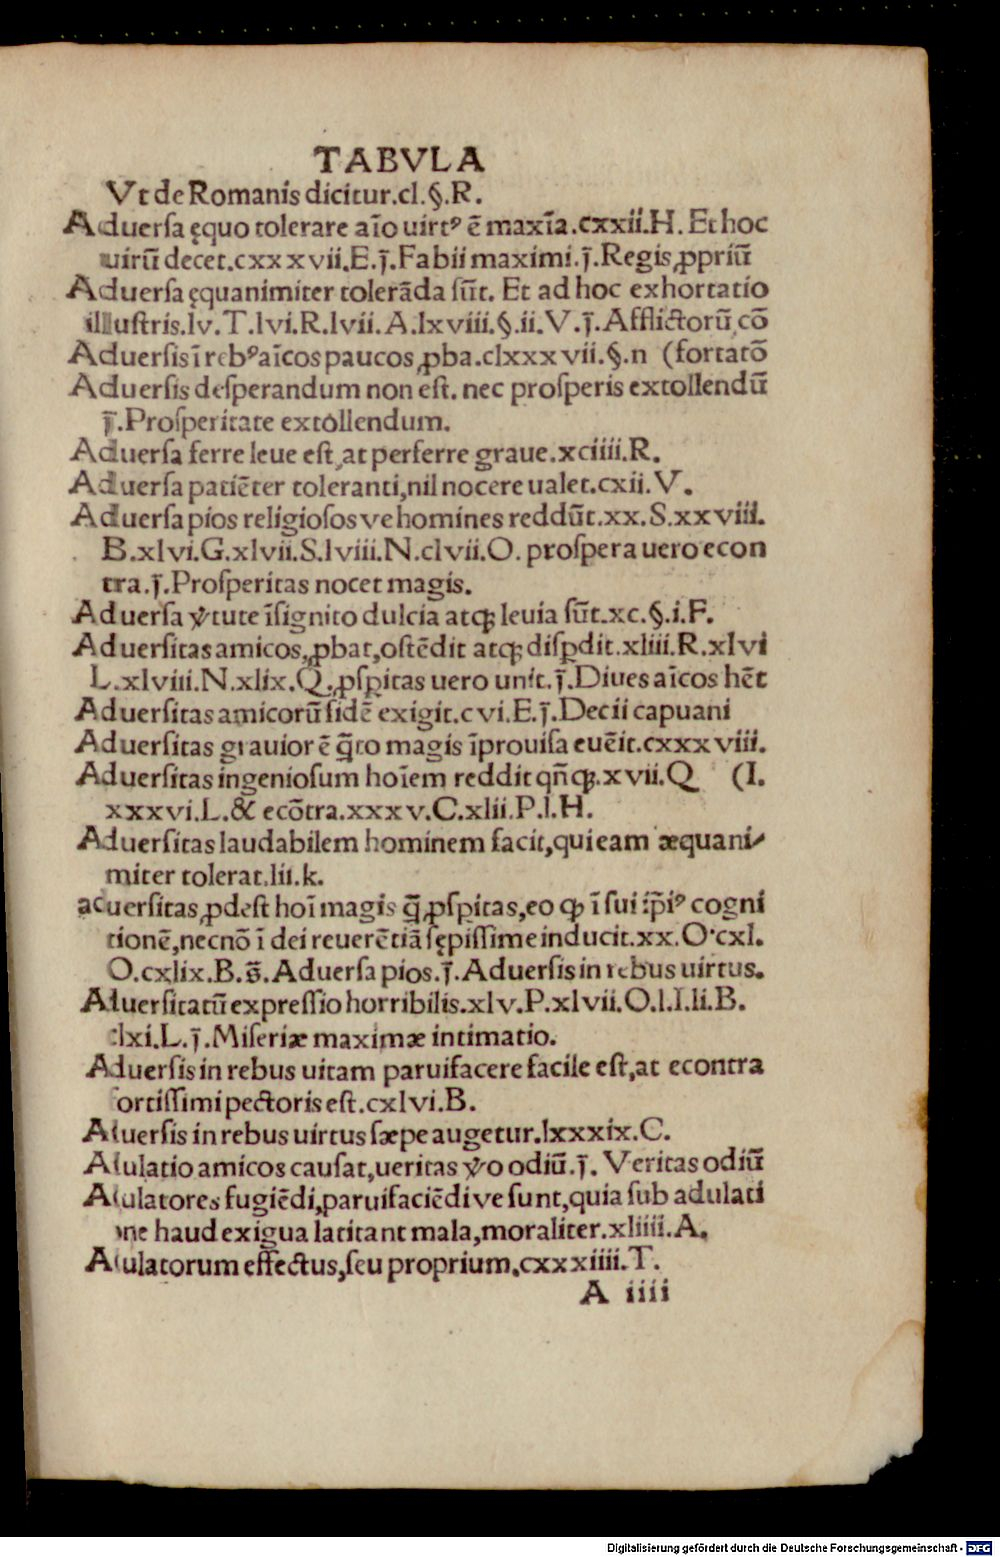 TABVLA
Vt de Romanis dicitur.cl.§.R.
Aduersa ęquo tolerare aīo uirtꝰ ē maxīa.cxxii.H. Et hoc
uirū decet.cxxxvii.E.j̄.Fabii maximi.j̄.Regis ꝓpriū
Aduersa ęquanimiter tolerāda sūt. Et ad hoc exhortatio
illustris.lv.T.lvi.R.lvii.A.lxviii.§.ii.V.j̄.Afflictorū cō
Aduersis ī rebꝰ aīcos paucos ꝓba.clxxxvii.§.n (fortatō
Aduersis desperandum non est. nec prosperis extollendū
j̄.Prosperitate extollendum.
Aduersa ferre leue est, at perferre graue.xciiii.R.
Aduersa patiēter toleranti, nil nocere ualet.cxii.V.
Aduersa pios religiosos ve homines reddūt.xx.S.xxviii.
B.xlvi.G.xlvii.S.lviii.N.clvii.O. prospera uero econ
tra.j̄.Prosperitas nocet magis.
Aduersa v̓tute īsignito dulcia atqꝫ leuia sūt.xc.§.i.F.
Aduersitas amicos ꝓbat, ostēdit atqꝫ disꝑdit.xliii.R.xlvi
L.xlviii.N.xlix.Q.ꝓsꝑitas uero unit.j̄.Diues aīcos hēt
Aduersitas amicorū fidē exigit.cvi.E.j̄.Decii capuani
Aduersitas grauior ē q̄to magis īprouisa euēit.cxxxviii.
Aduersitas ingeniosum hoīem reddit qn̄qꝫ.xvii.Q (I.
xxxvi.L.& ecōtra.xxxv.C.xlii.P.l.H.
Aduersitas laudabilem hominem facit, qui eam æquani-
miter tolerat.lii.k.
aduersitas ꝓdest hoī magis q̄ ꝓsꝑitas, eo ꝙ ī sui ip̄iꝰ cogni
tionē, necnō ī dei reuerētiā sępissime inducit.xx.O.cxl.
O.cxlix.B.s̄.Aduersa pios.j̄.Aduersis in rebus uirtus.
Aduersitatū expressio horribilis.xlv.P.xlvii.O.l.I.li.B.
clxi.L.j̄.Miseriæ maximæ intimatio.
Aduersis in rebus uitam paruifacere facile est, at econtra
fortissimi pectoris est.cxlvi.B.
Aduersis in rebus uirtus sæpe augetur.lxxxix.C.
Adulatio amicos causat, ueritas v̓o odiū.j̄. Veritas odiū
Adulatores fugiēdi, paruifaciēdi ve sunt, quia sub adulati
one haud exigua latitant mala, moraliter.xliiii.A.
Adulatorum effectus, seu proprium.cxxxiiii.T.
A iiii
Digitalisierung gefördert durch die Deutsche Forschungsgemeinschaft - DFG